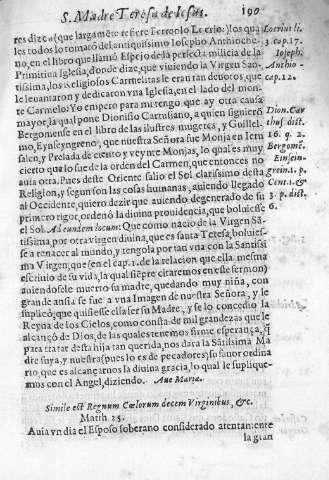 S. Madre Teresa de Iesus. 190
res dize a (que largaméte refiere Ferreolo Locrio) los qua
les todos lo tomaró del antiquissimo Iosepho Antiocheno,
no, en el libro que llamó Espejo de la perfecta milicia de la
Primitiua Iglesia, donde dize, que viuiendo la Virgen San-
tissima, los Religiosos Carmelitas le eran tan deuotos, que
le leuantaron y dedicaron vna Iglesia, en el lado del mon-
te Carmelo: Yo empero para mi tengo que ay otra causa
mayor, la qual pone Dionisio Cartusiano, a quien siguieró
Bergomense en el libro de las ilustres mugeres, y Guillel-
mo, Eynseyngreno, que nuestra Señora fue Monja en Ieru
salen, y Prelada de ciento y veynte Monjas, lo qual es muy
cierto que lo fue de la orden del Carmen, que entonces no
auia otra. Pues deste Oriente salio el Sol clarissimo desta
Religion, y segun son las cosas humanas, auiendo llegado
al Occidente, quiero dezir que auiendo degenerado de su
primero rigor, ordenó la diuina prouidencia, que boluiesse
el Sol. Ad eundem locum: Que como nacio de la Virgen Sá-
tissima, por otra virgen diuina, que es santa Teresa, boluies-
se a renacer al mundo, y tengola por tan vna con la Santissi
ma Virgen, que (en el cap. 1. de la relacion que ella mesma
escriuio de su vida, la qual siépre citaremos en este sermon)
auiendosele muerto su madre, quedando muy niña, con
grande ansia se fue a vna Imagen de nuestra Señora, y le
suplicó, que quisiesse ella ser su Madre, y se lo concedio la
Reyna de los Cielos, como consta de mil grandezas que le
alcançó de Dios, de las quales tenemos firme esperança, q̃
para tratar desta hija tan querida, nos dara la Sátissima Ma
dre suya, y nuestra (pues lo es de pecadores) su fauor ordina
rio, que es alcançarnos la diuina gracia, lo qual le suplique-
mos con el Angel, diziendo. Aue Maria.
Simile est Regnum Cœlorum decem Virginibus, &c.
Matth. 25.
Auia vn dia el Esposo soberano considerado atentamente
la gran
a Locrius li.
3. cap. 17.
Ioseph.
Anthio-
cap. 12.
Dion. Car
thus. dist.
16. q. 2.
Bergomē.
Einsein-
gren. 1. p.
Cent. 1. &
3. p. dist.
6.